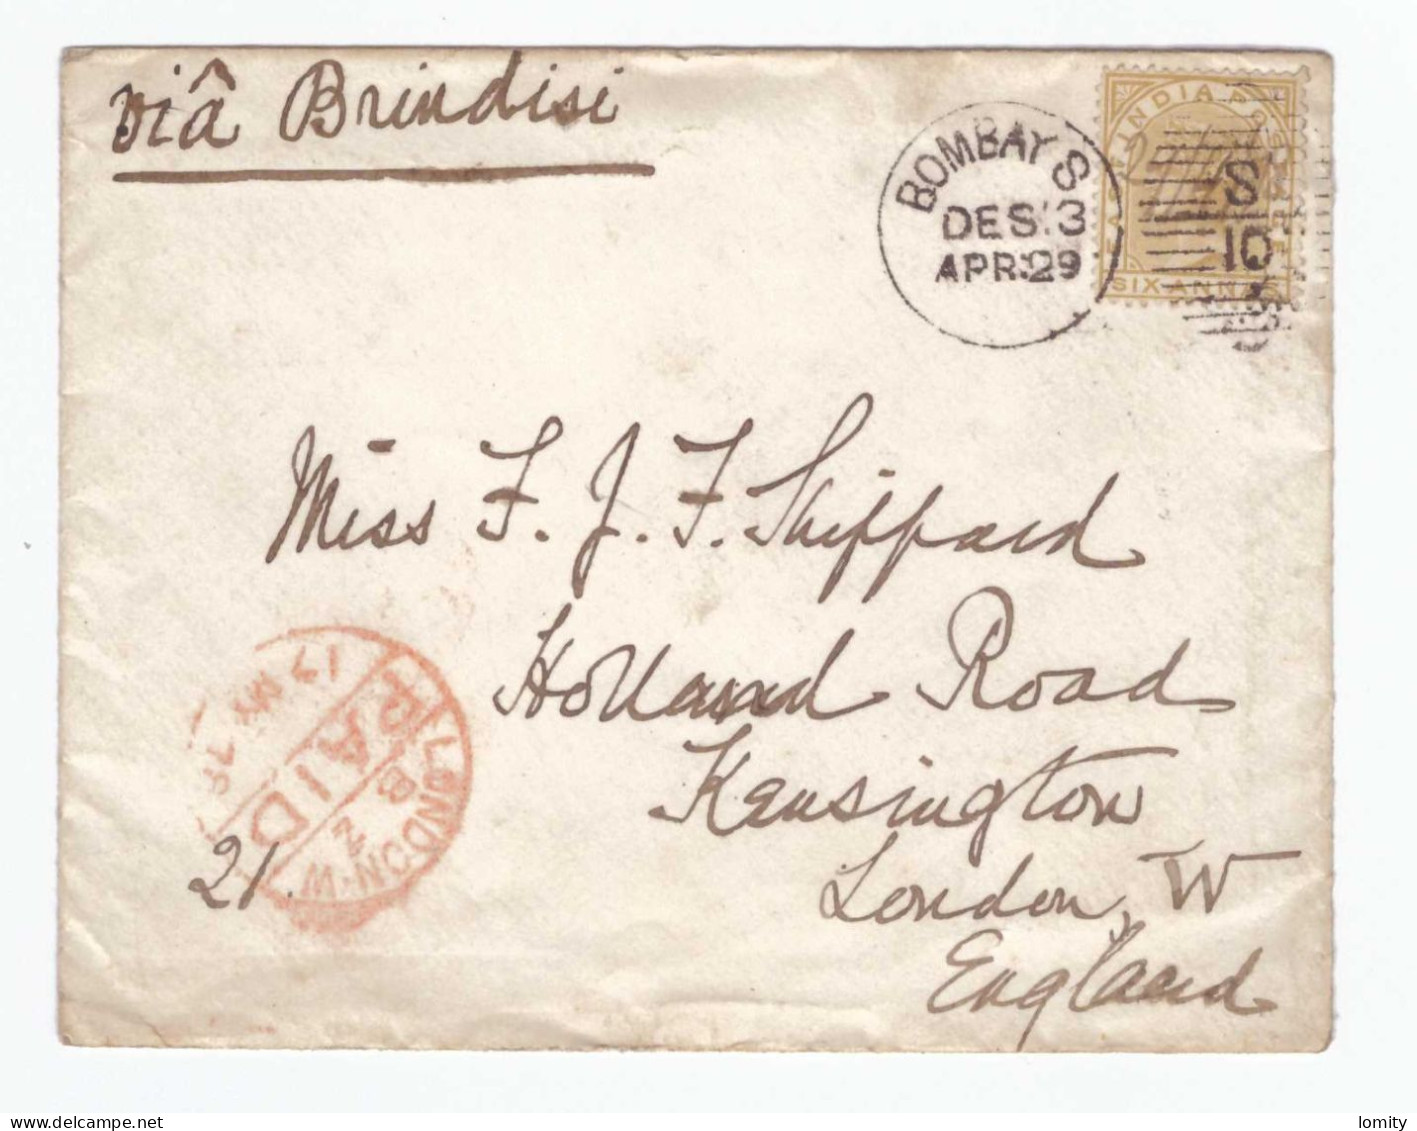 viâ Brindisi
INDIA POSTAGE
SIX ANNAS
BOMBAY S
DES:3
APR:29
S
10
Miss F. J. F. Shippard
Holland Road
Kensington
London, W
England
21.
LONDON·W
PAID
17 MY
B
Z
lomity